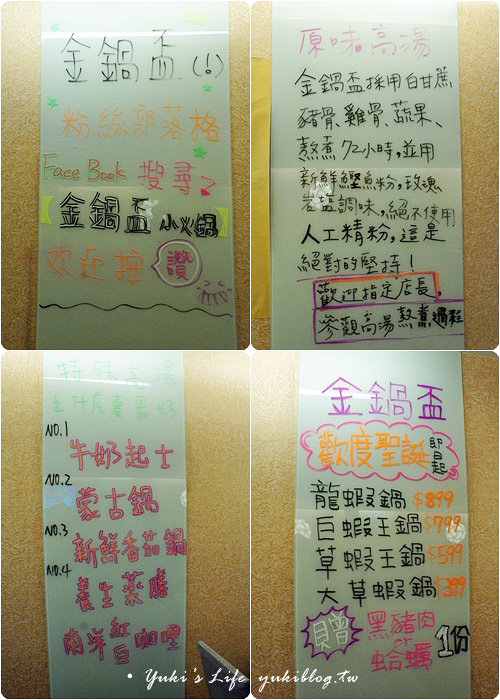 金鍋盃(!)
粉絲部落格
Face Book 搜尋
金鍋盃 小火鍋
欢迎按 讚
原味高湯
金鍋盃採用白甘蔗
豬骨、雞骨、蔬果、
熬煮72小時,並用
新鮮鰹魚粉,玫瑰
岩盐調味,絕不使用
人工精粉,這是
絕對的堅持!
歡迎指定店長,
參觀高湯熬煮過程
特殊高湯
NO.1
牛奶起士
NO.2
蒙古鍋
NO.3
新鮮番茄鍋
NO.4
養生藥膳
南洋紅白咖哩
金鍋盃
歡度聖誕 即日起
龍蝦鍋 $899
巨蝦王鍋 $799
草蝦王鍋 $599
大草蝦鍋 $399
加贈 黑豬肉
蛤蠣 1份
• Yuki's Life yukiblog.tw